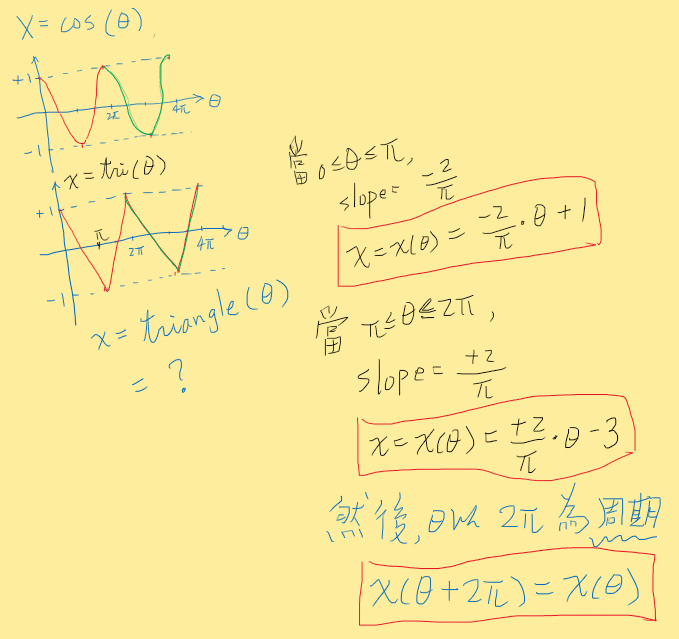 x = cos(θ),
+1
-1
2π
4π
θ
x = tri(θ)
+1
-1
π
2π
4π
θ
x = triangle(θ)
= ?
當 0≤θ≤π,
slope = -2/π
x = x(θ) = -2/π · θ + 1
當 π≤θ≤2π,
slope = +2/π
x = x(θ) = +2/π · θ - 3
然後, θ以 2π 為周期
x(θ+2π) = x(θ)